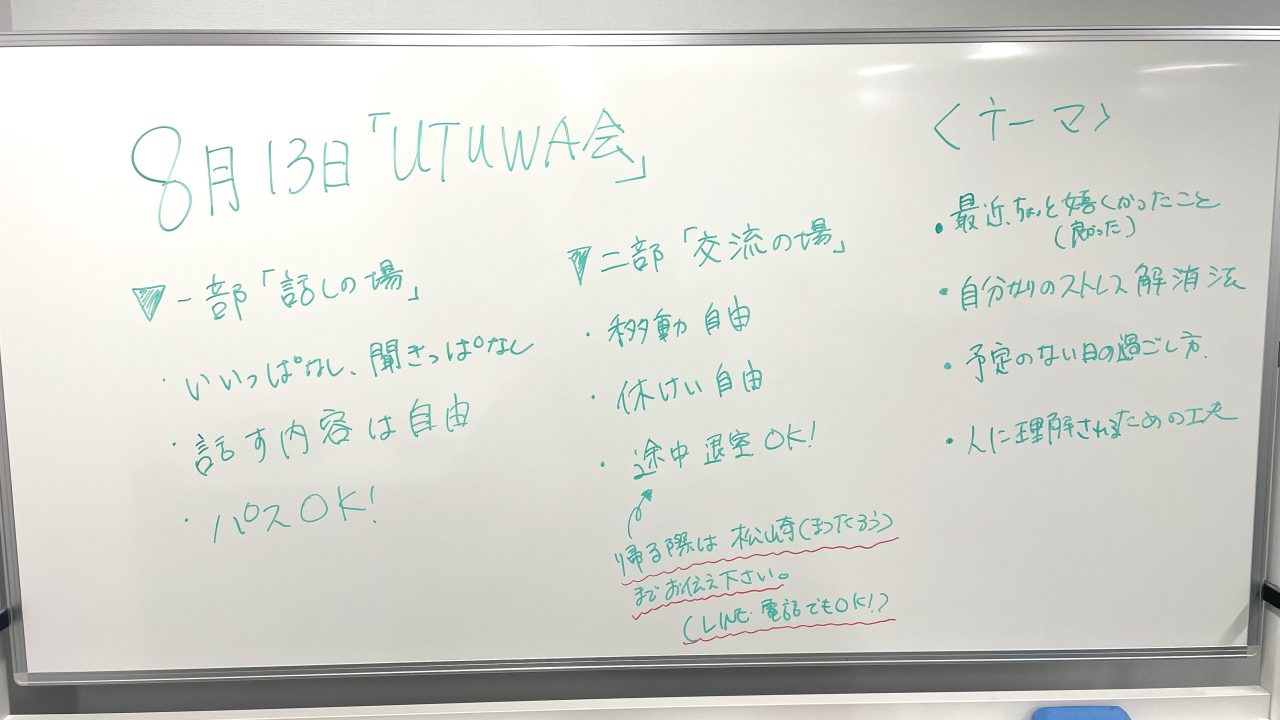 8月13日「UTUWA会」
▼一部「話しの場」
・いいっぱなし、聞きっぱなし
・話す内容は自由
・パスOK!
▼二部「交流の場」
・移動自由
・休けい自由
・途中退室OK!
帰る際は松山奇(まつたろう)
までお伝え下さい。
(LINE・電話でもOK!)
<テーマ>
・最近、ちょっと嬉しかったこと
(良かった)
・自分なりのストレス解消法
・予定のない日の過ごし方.
・人に理解されるための工夫